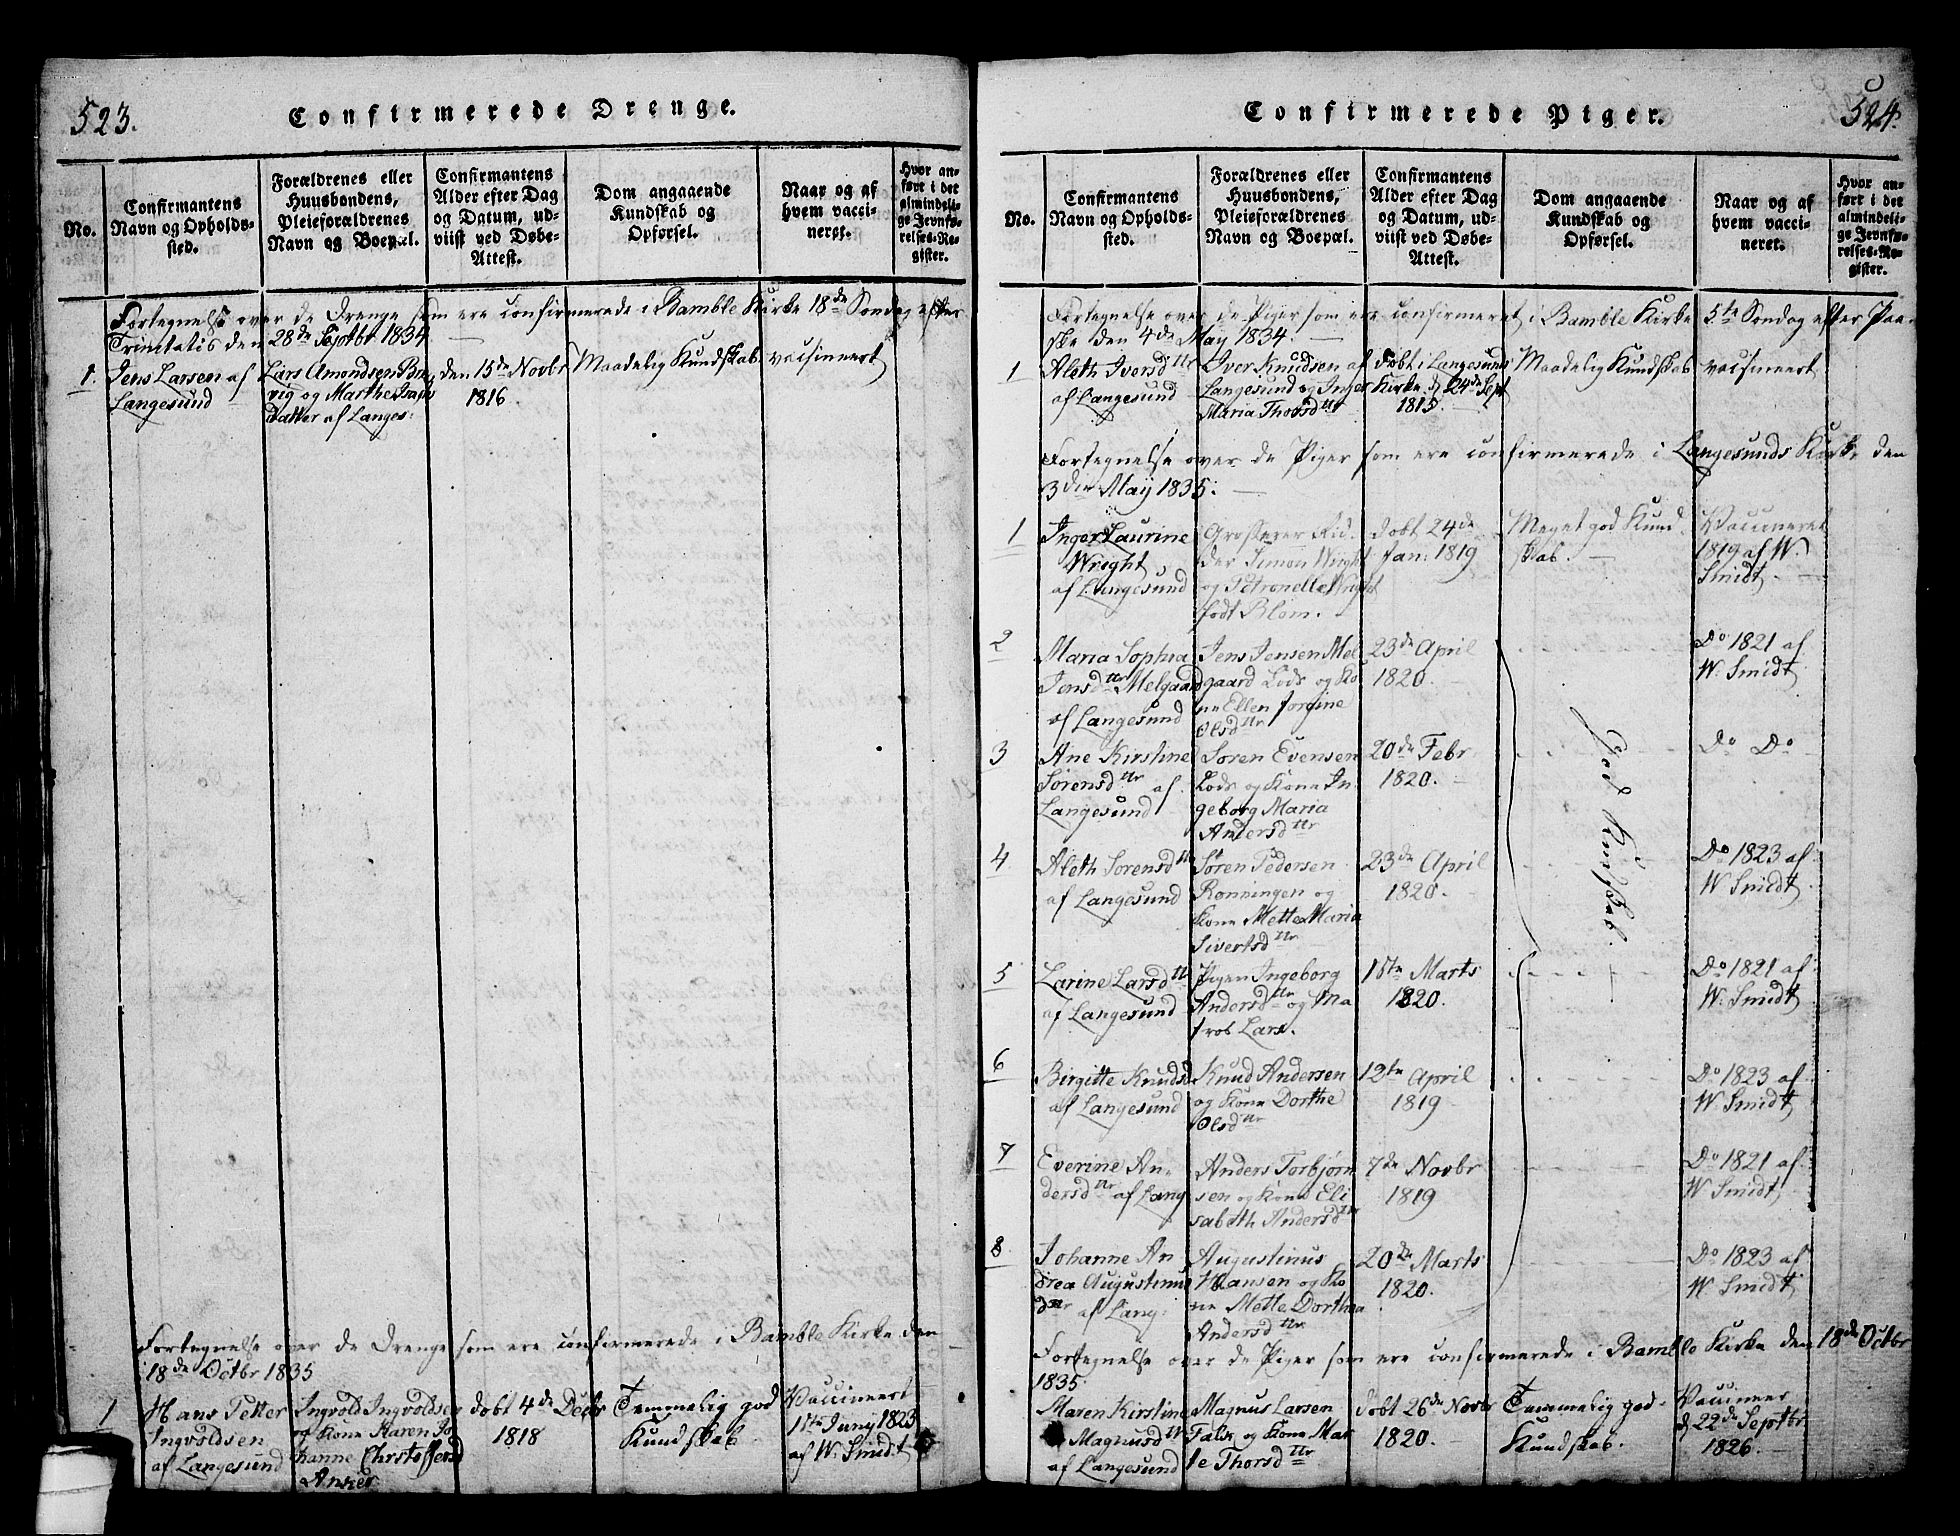 523.
Confirmerede Drenge.
No.
Confirmantens
Navn og Opholds-
sted.
Forældrenes eller
Huusbondens,
Pleieforældrenes
Navn og Boepæl.
Confirmantens
Alder efter Dag
og Datum, ud-
viist ved Døbe-
Attest.
Dom angaaende
Kundskab og
Opførsel.
Naar og af
hvem vacci-
neret.
Hvor an-
ført i det
almindeli-
ge Jevnfø-
relses-Re-
gister.
Fortegnelse over de Drenge som ere confirmerede i Bamble Kirke 18de Søndag efter
Trinitatis den 28de Septbr 1834.
1.
Jens Larsen af
Langesund
Lars Amondsen Bre
vig og Marthe
Datter af Langes:
den 15de Novbr
1816.
Maadelig Kundskab.
vacsineert
Fortegnelse over de Drenge som ere confirmerede i Bamble Kirke den
18de Octbr 1835
1
Hans Petter
Ingvoldsen
af Langesund
Ingvold Ingvoldsen
og Kone Karen Jo
hanne Chrstoffersd
Anker
døbt 4de Decbr
1818
Temmelig god
Kundskab.
Vaccineert
1ste Juny 1823
af W. Smidt
524.
Confirmerede Piger.
No.
Confirmantens
Navn og Opholds-
sted.
Forældrenes eller
Huusbondens,
Pleieforældrenes
Navn og Boepæl.
Confirmantens
Alder efter Dag
og Datum, ud-
viist ved Døbe-
Attest.
Dom angaaende
Kundskab og
Opførsel.
Naar og af
hvem vacci-
neret.
Hvor an-
ført i det
almindeli-
ge Jevnfø-
relses-Re-
gister.
Fortegnelse over de Piger som ere confirmeret i Bamble Kirke 5te Søndag efter Paa-
ske den 4de May 1834.
1
Aleth Iversdttr
af Langesund
Iver Knudsen af
Langesund og Inger
Maria Thorsdttr
Døbt i Langesunds
Kirke d 24de Sept
1815.
Maadelig Kundskab
vacsineert
Fortegnelse over de Piger som ere confirmerede i Langesunds Kirke den
3den May 1835.
1
Inger Laurine
Wright
af Langesund
Grosserer Rid-
der Simon Wright
og Petronelle Wright
født Blom.
Døbt 24de
Jan: 1819
Meget god Kund
skab.
Vaccineret
1819 af W.
Smidt.
2
Maria Sophia
Jensdttr Melgaard
af Langesund
Jens Jensen Mel
gaard Lods og Ko
ne Ellen Jorgine
Olsdttr
23de April
1820.
Do 1821 af
W. Smidt
3
Ane Kirstine
Sørensdttr af
Langesund
Søren Evensen
Lods og Kone In
geborg Maria
Andersdttr
20de Febr
1820.
God Kundskab.
Do Do
4
Aleth Sorensdttr
af Langesund
Søren Pedersen
Rønningen og
Kone Mette Maria
Sivertsdttr
23de April
1820.
Do 1823 af
W. Smidt.
5
Larine Larsdttr
af Langesund
Pigen Ingeborg
Andersdttr og Ma
tros Lars.
1ste Marts
1820.
Do 1821 af
W. Smidt
6
Birgitte Knudsd
af Langesund
Knud Andersen
og Kone Dorthe
Olsdttr
12te April
1819
Do 1823 af
W. Smidt
7
Everine An-
dersdttr af Lang
Anders Torbjørn
sen og Kone Eli
sabeth Andersdttr
7de Novbr
1819
Do 1821 af
W Smidt,
8
Johanne An
drea Augustinus
dttr af Lang:
Augustinus
Hansen og Ko
ne Mette Dorthea
Andersdttr
20de Marts
1820.
Do 1823 af
W Smidt
Fortegnelse over de Piger som ere confirmerede i Bamble Kirke den 18de Octbr
1835.
Maren Kirstine
Magnusdttr
af Langesund
Magnus Larsen
Falk og Kone Mar
te Thorsdttr
døbt 26de Novbr
1820.
Temmelig god
Kundskab.
Vaccineer
d 22de Septbr
1826.